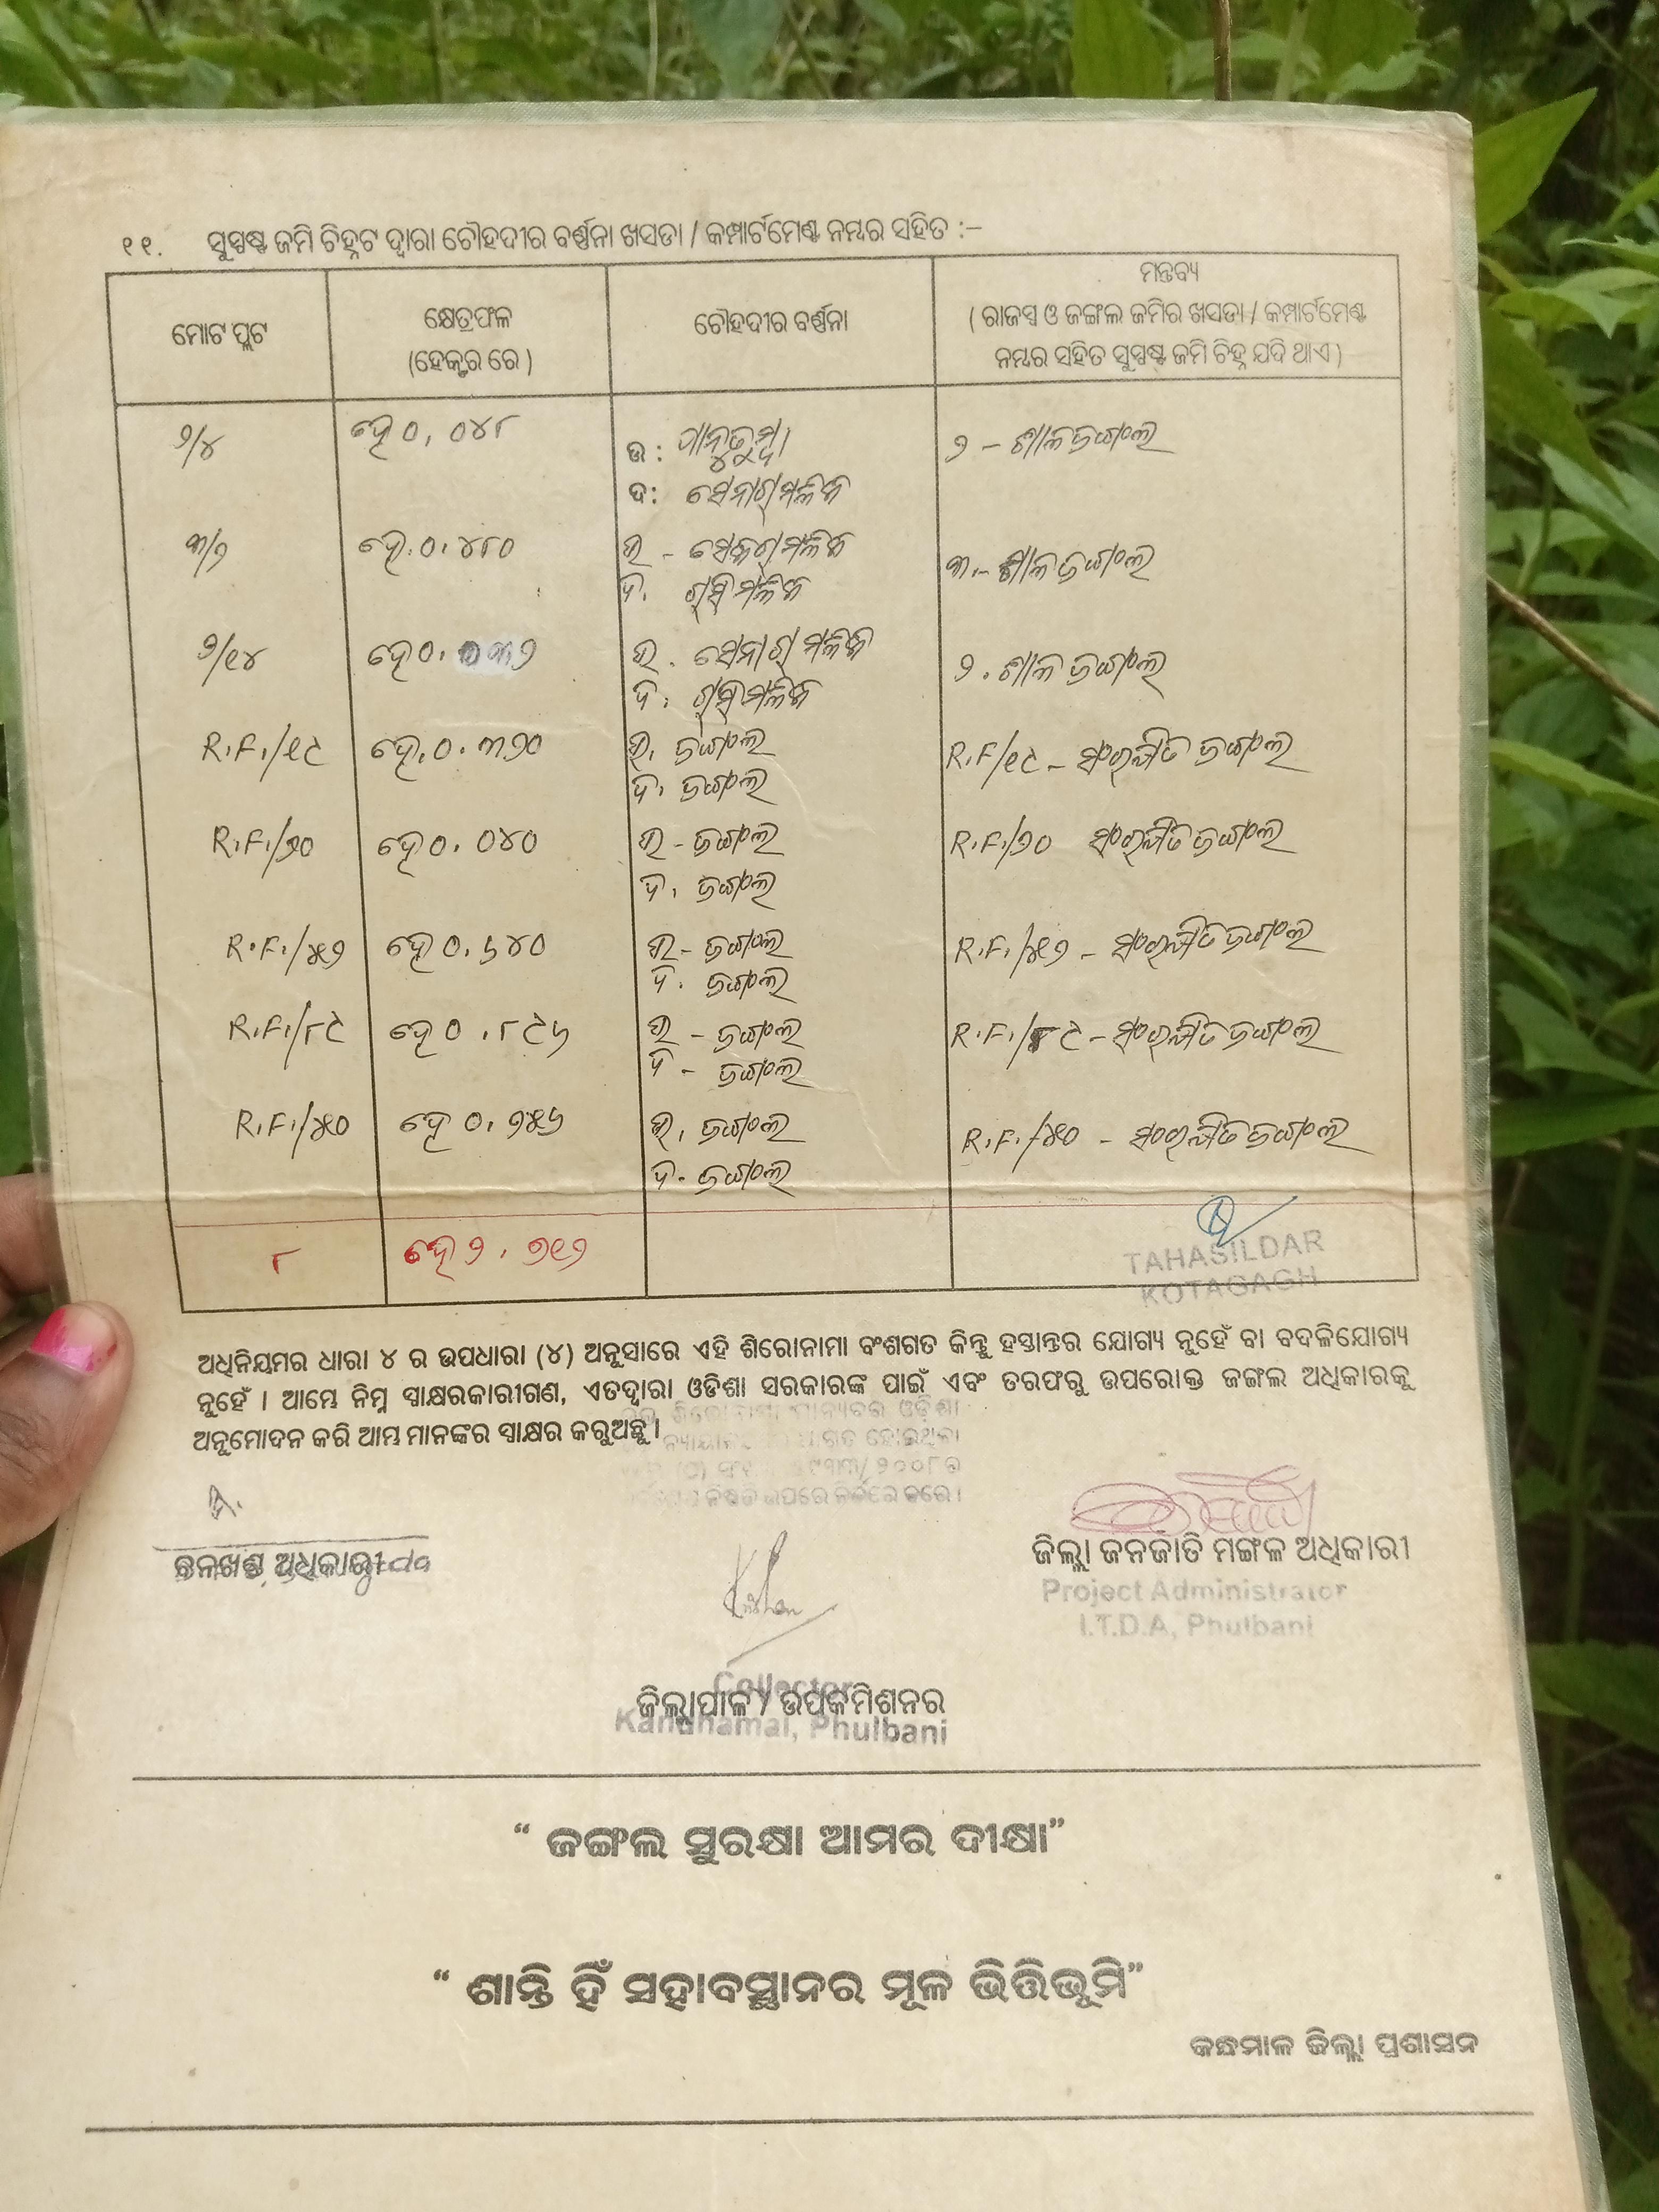 ୧୧. ସୁସ୍ପଷ୍ଟ ଜମି ଚିହ୍ନଟ ଦ୍ୱାରା ଚୌହଦୀର ବର୍ଣ୍ଣନା ଖସଡା / କମ୍ପାର୍ଟମେଣ୍ଟ ନମ୍ବର ସହିତ :–
ମୋଟ ପ୍ଲଟ
କ୍ଷେତ୍ରଫଳ
(ହେକ୍ଟର ରେ)
ଚୌହଦୀର ବର୍ଣ୍ଣନା
ମନ୍ତବ୍ୟ
( ରାଜସ୍ୱ ଓ ଜଙ୍ଗଲ ଜମିର ଖସଡା / କମ୍ପାର୍ଟମେଣ୍ଟ
ନମ୍ବର ସହିତ ସୁସ୍ପଷ୍ଟ ଜମି ଚିହ୍ନ ଯଦି ଥାଏ )
୨/୪ ହେ ୦.୦୪୮ ଉ: ୨ - ଶାଳ ଜଙ୍ଗଲ
ଦ: ସେନାଗ୍ ମଳିକ
୩/୨ ହେ.୦.୪୮୦ ଉ - ମଳିକ ୩.- ଶାଳ ଜଙ୍ଗଲ
ଦ. ମଳିକ
୨/୧୪ ହେ ୦. ଉ. ସେନାଗ୍ ମଳିକ ୨. ଶାଳ ଜଙ୍ଗଲ
ଦ. ମଳିକ
R.F./୧୯ ହେ.୦.୩୨୦ ଉ. ଜଙ୍ଗଲ R.F/୧୯ - ସଂରକ୍ଷିତ ଜଙ୍ଗଲ
ଦ. ଜଙ୍ଗଲ
R.F./୨୦ ହେ ୦.୦୪୦ ଉ - ଜଙ୍ଗଲ R.F./୨୦ ସଂରକ୍ଷିତ ଜଙ୍ଗଲ
ଦ. ଜଙ୍ଗଲ
R.F./୪୧୨ ହେ ୦.୬୪୦ ଉ - ଜଙ୍ଗଲ R.F./୪୧୨ - ସଂରକ୍ଷିତ ଜଙ୍ଗଲ
ଦ. ଜଙ୍ଗଲ
R.F./୮୯ ହେ ୦.୮୯୬ ଉ - ଜଙ୍ଗଲ R.F./୮୯ - ସଂରକ୍ଷିତ ଜଙ୍ଗଲ
ଦ - ଜଙ୍ଗଲ
R.F./୫୦ ହେ ୦.୨୫୬ ଉ. ଜଙ୍ଗଲ R.F./୫୦ - ସଂରକ୍ଷିତ ଜଙ୍ଗଲ
ଦ. ଜଙ୍ଗଲ
୮ ହେ ୨.୭୧୨
TAHASILDAR
KOTAGAGH
ଅଧିନିୟମର ଧାରା ୪ ର ଉପଧାରା (୪) ଅନୁସାରେ ଏହି ଶିରୋନାମା ବଂଶଗତ କିନ୍ତୁ ହସ୍ତାନ୍ତର ଯୋଗ୍ୟ ନୁହେଁ ବା ବଦଳିଯୋଗ୍ୟ
ନୁହେଁ । ଆମ୍ଭେ ନିମ୍ନ ସ୍ୱାକ୍ଷରକାରୀଗଣ, ଏତଦ୍ୱାରା ଓଡିଶା ସରକାରଙ୍କ ପାଇଁ ଏବଂ ତରଫରୁ ଉପରୋକ୍ତ ଜଙ୍ଗଲ ଅଧିକାରକୁ
ଅନୁମୋଦନ କରି ଆମ୍ଭ ମାନଙ୍କର ସ୍ୱାକ୍ଷର କରୁଅଛୁ ।
ଉପରେ ନିର୍ଭର କରେ ।
ବନଖଣ୍ଡ ଅଧିକାରୀ
ଜିଲ୍ଲା ଜନଜାତି ମଙ୍ଗଳ ଅଧିକାରୀ
Project Administrator
I.T.D.A, Phulbani
Collector
ଜିଲ୍ଲାପାଳ / ଉପକମିଶନର
Kandhamal, Phulbani
“ ଜଙ୍ଗଲ ସୁରକ୍ଷା ଆମର ଦୀକ୍ଷା”
“ ଶାନ୍ତି ହିଁ ସହାବସ୍ଥାନର ମୂଳ ଭିତ୍ତିଭୂମି”
କନ୍ଧମାଳ ଜିଲ୍ଲା ପ୍ରଶାସନ